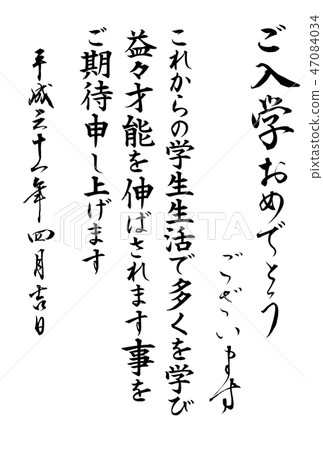 ご入学おめでとう
ございます
これからの学生生活で多くを学び
益々才能を伸ばされます事を
ご期待申し上げます
平成三十一年四月吉日
PIXTA
47084034